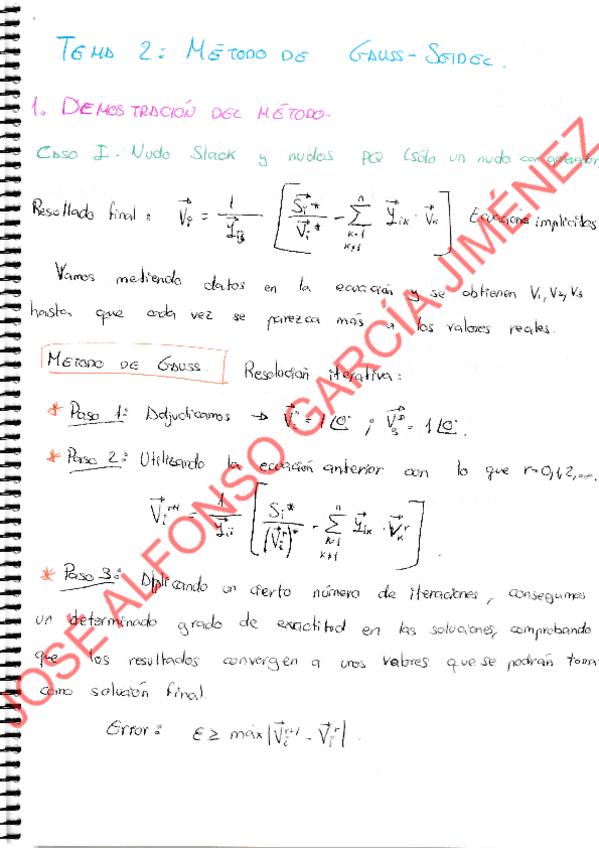 TEMA 2: MÉTODO DE GAUSS-SEIDEL.
1. DEMOSTRACIÓN DEL MÉTODO.
CASO I. Nudo Slack y nudos PQ (sólo un nudo con generador)
Resultado final: V⃗i = 1/Y⃗ii [ S⃗i*/V⃗i* - Σ(k=1, k≠i)^n Y⃗ik · V⃗k ] Ecuaciones implícitas
Vamos metiendo datos en la ecuación y se obtienen V1, V2, V3
hasta que cada vez se parezca más a los valores reales.
MÉTODO DE GAUSS. Resolución iterativa:
* Paso 1: Adjudicamos → V⃗2° = 1∠0° ; V⃗3° = 1∠0°.
* Paso 2: Utilizando la ecuación anterior con lo que r=0,1,2,....
V⃗i^r+1 = 1/Y⃗ii [ Si*/(V⃗i^r)* - Σ(k=1, k≠i)^n Y⃗ik · V⃗k^r ].
* Paso 3: Aplicando un cierto número de iteraciones, conseguimos
un determinado grado de exactitud en las soluciones, comprobando
que los resultados convergen a unos valores que se podrán tomar
como solución final.
Error: ε ≥ máx |V⃗i^r+1 - V⃗i^r|.
JOSÉ ALFONSO GARCÍA JIMÉNEZ